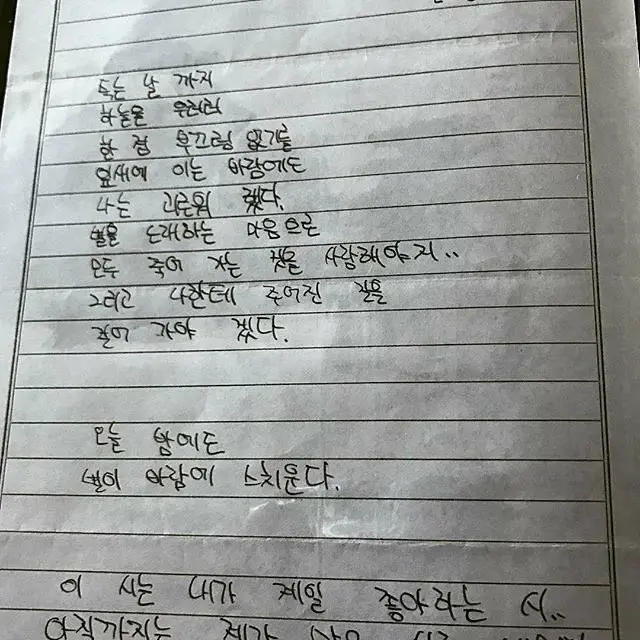 죽는 날 까지
하늘을 우러러
한 점 부끄럼 없기를
잎새에 이는 바람에도
나는 괴로워 했다.
별을 노래하는 마음으로
모두 죽어 가는 것을 사랑해야지..
그리고 나한테 주어진 길을
걸어 가야 겠다.
오늘 밤에도
별이 바람에 스치운다.
이 시는 내가 제일 좋아하는 시..
아직까지는 제가